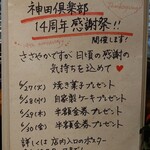 神田倶楽部
14周年感謝祭!!
開催します!
ささやかですが日頃の感謝の
気持ちを込めて♥
5/27(火) 焼き菓子プレゼント
5/28(水) 自家製ケーキプレゼント
5/29(木) 半額金券プレゼント
5/30(金) 半額金券プレゼント
詳しくは店の入口のポスター